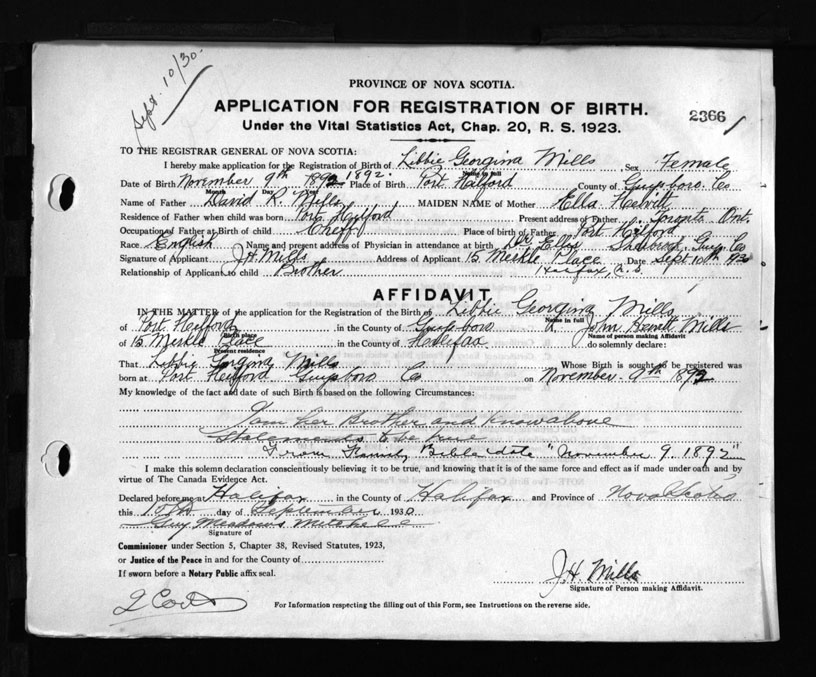 Sept. 10/30.
PROVINCE OF NOVA SCOTIA.
APPLICATION FOR REGISTRATION OF BIRTH.
2366
Under the Vital Statistics Act, Chap. 20, R. S. 1923.
TO THE REGISTRAR GENERAL OF NOVA SCOTIA:
I hereby make application for the Registration of Birth of Libbie Georgina Mills Sex Female
Name in full
Date of Birth November 9th 1892 1892. Place of Birth Port Hilford County of Guysboro Co
Month Day Year
Name of Father David R. Mills MAIDEN NAME of Mother Ella
Residence of Father when child was born Port Hilford Present address of Father Toronto Ont.
Occupation of Father at Birth of child Place of birth of Father Port Hilford
Race English Name and present address of Physician in attendance at birth Dr. Sherbrooke, Guys. Co
Signature of Applicant J.H. Mills Address of Applicant 15 Merkle Place Date Sept 10th 1930
Relationship of Applicant to child Brother Halifax, N.S.
AFFIDAVIT
IN THE MATTER of the application for the Registration of the Birth of Libbie Georgina Mills
Name in full
of Port Hilford in the County of Guysboro I, John Mills
Birth place Name of person making Affidavit
of 15 Merkle Place in the County of Halifax do solemnly declare:
Present residence
That Libbie Gorgina Mills Whose Birth is sought to be registered was
born at Port Hilford Guysboro Co on November 9th 1892
My knowledge of the fact and date of such Birth is based on the following Circumstances:
I am her Brother and know above
Statements to be true
From Family Bible date "November 9. 1892"
I make this solemn declaration conscientiously believing it to be true, and knowing that it is of the same force and effect as if made under oath and by
virtue of The Canada Evidence Act.
Declared before me at Halifax in the County of Halifax and Province of Nova Scotia
this day of September 1930
Guy Meadows Mitchell
Signature of
Commissioner under Section 5, Chapter 38, Revised Statutes, 1923,
or Justice of the Peace in and for the County of
If sworn before a Notary Public affix seal.
J.H. Mills
Signature of Person making Affidavit.
For Information respecting the filling out of this Form, see Instructions on the reverse side.